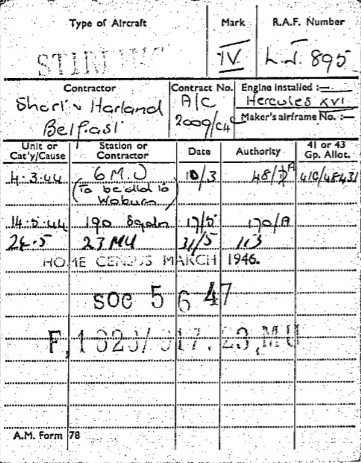 Type of Aircraft Mark R.A.F. Number
IV L.J. 895
Contractor Contract No. Engine installed :—
Short & Harland A/C Hercules XVI
Belfast 2009/C4 Maker's airframe No. :—
Unit or Cat'y/Cause Station or Contractor Date Authority 41 or 43 Gp. Allot.
4.3.44 6 M.U 10/3 41G/48431
(to be dld to
Woburn)
14.5.44 190 Sqdn 17/5 170/A
24.5 23 MU 31/5 113
HOME CENSUS MARCH 1946.
SOC 5 6 47
23 MU
A.M. Form 78